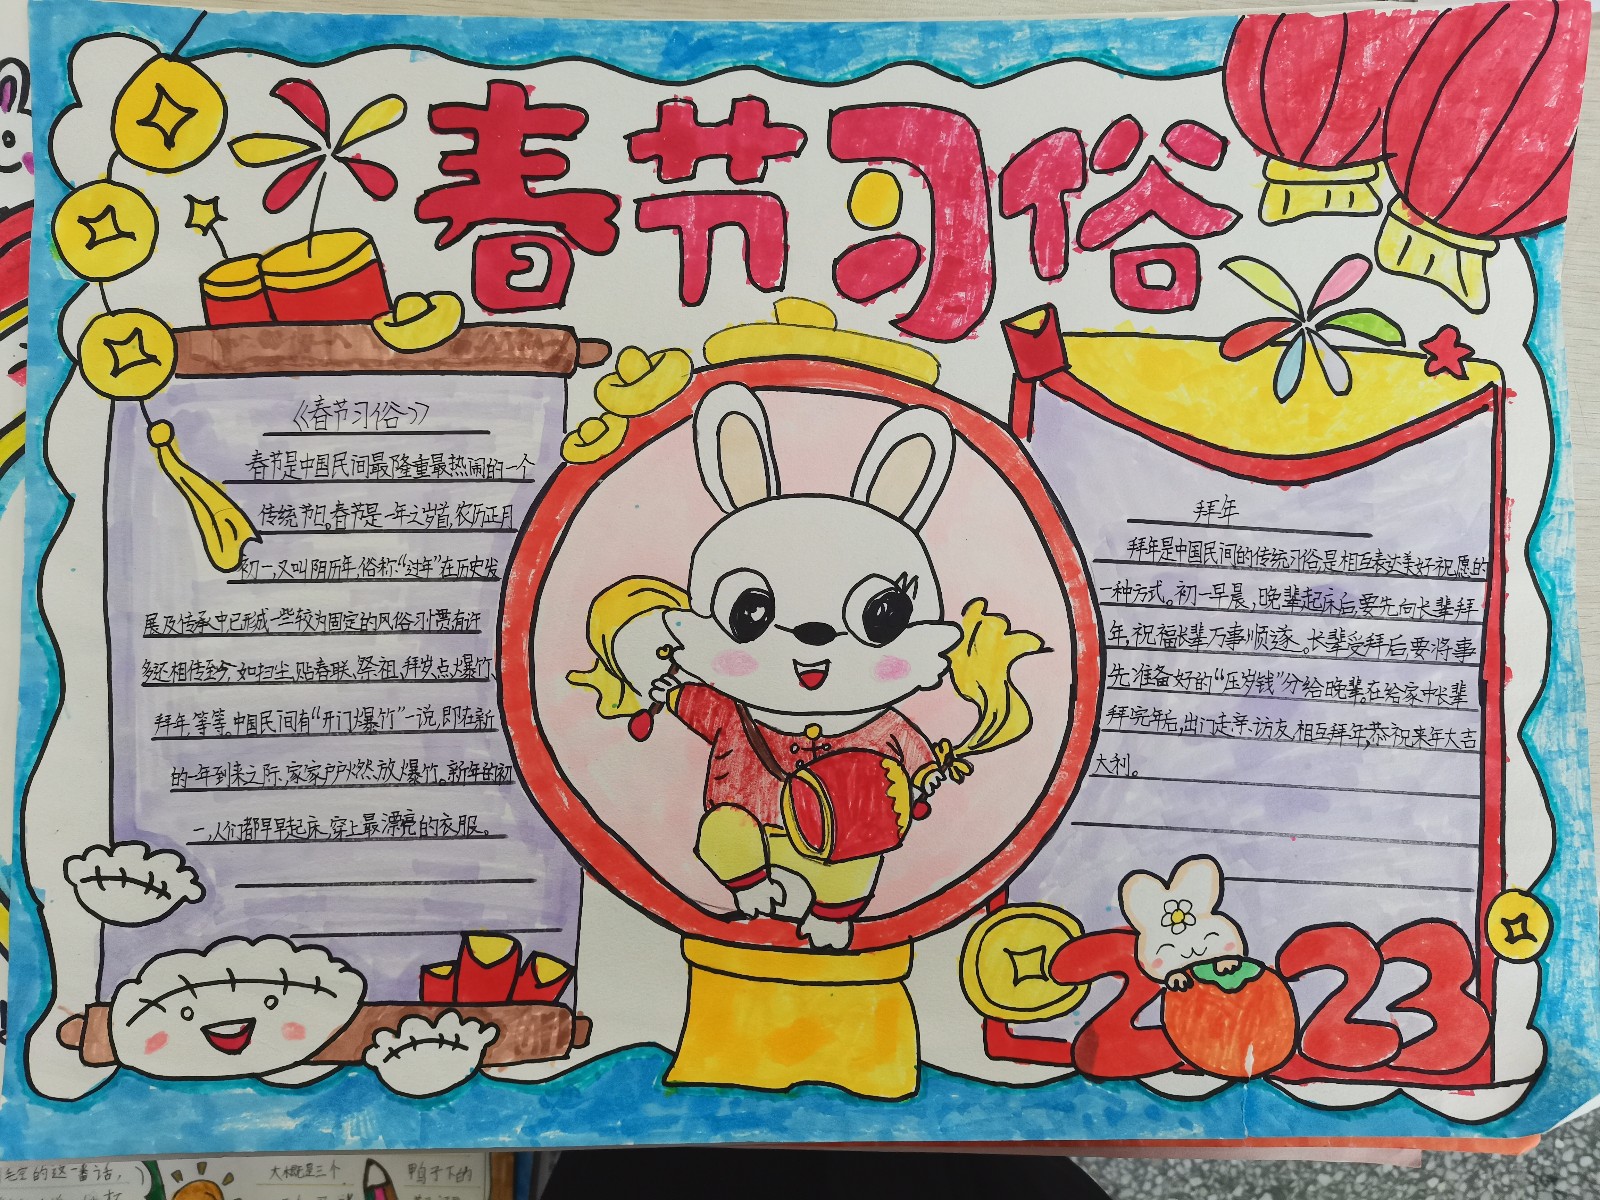 春节习俗
《春节习俗》
春节是中国民间最隆重最热闹的一个
传统节日。春节是一年之岁首,农历正月
初一,又叫阴历年,俗称“过年”在历史发
展及传承中已形成一些较为固定的风俗习惯有许
多还相传至今,如扫尘、贴春联、祭祖、拜岁、点爆竹、
拜年,等等。中国民间有“开门爆竹”一说,即在新
的一年到来之际,家家户户燃放爆竹。新年的初
一,人们都早早起床、穿上最漂亮的衣服。
拜年
拜年是中国民间的传统习俗,是相互表达美好祝愿的
一种方式。初一早晨,晚辈起床后,要先向长辈拜
年,祝福长辈万事顺遂。长辈受拜后,要将事
先准备好的“压岁钱”分给晚辈。在给家中长辈
拜完年后,出门走亲访友,相互拜年,恭祝来年大吉
大利。
2023
的这一番话,
大概是三个
鸭子下的